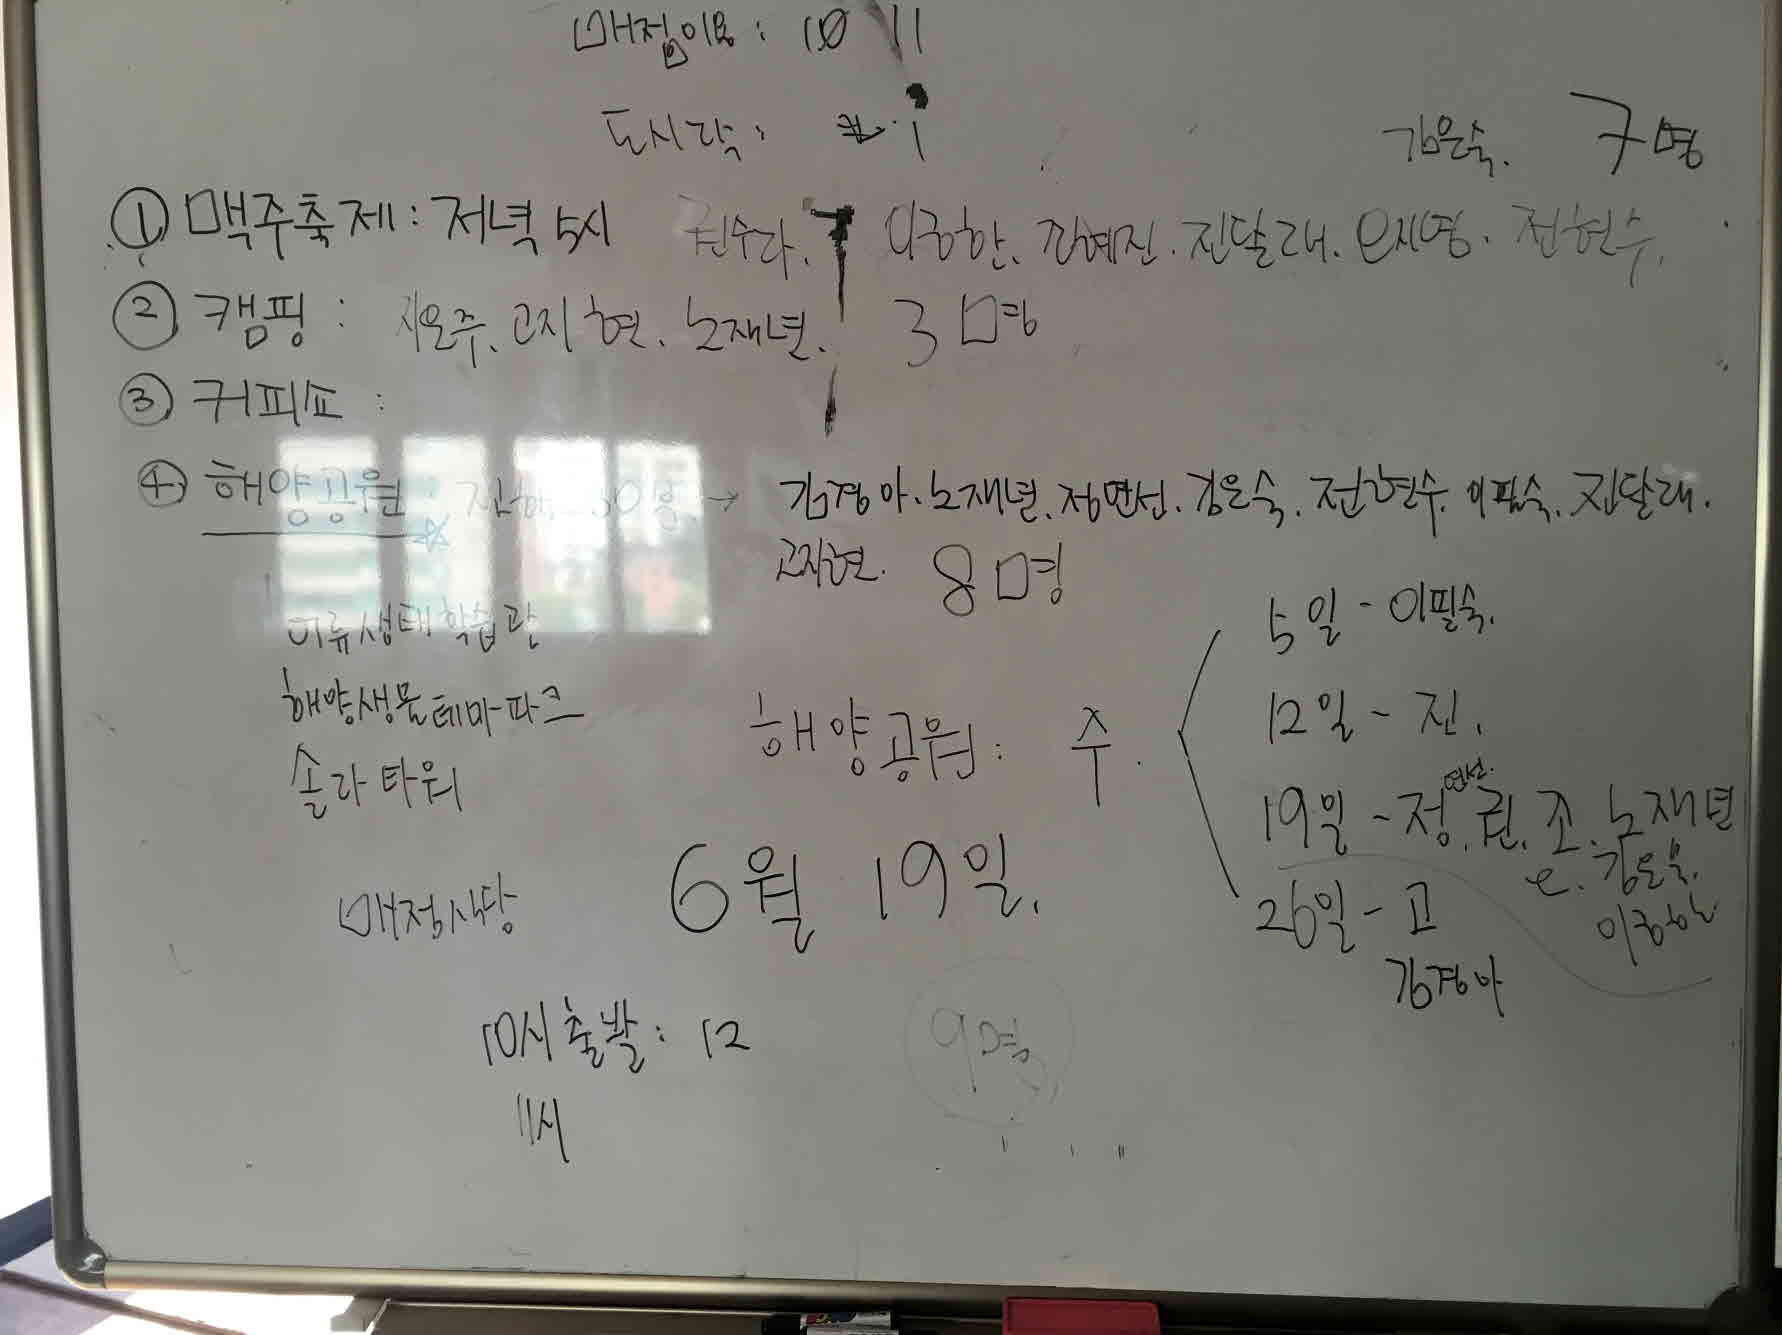 매점이용 : 10 11
도시락 :
김은숙. 7명
① 맥주축제 : 저녁 5시 권수라. 이종한. 김혜진. 진달래. 전현수.
② 캠핑 : 고지현. 노재년. 3명
③ 커피쇼 :
④ 해양공원 : 진해 30분 → 김경아. 노재년. 정연선. 김은숙. 전현수. 이필숙. 진달래.
고지현. 8명
어류생태학습관
해양생물테마파크
솔라타워
해양공원 : 수.
5일 - 이필숙.
12일 - 진.
19일 - 정연선. 권. 조. 노재년
e. 김은숙.
이종한
26일 - 고
김경아
매점식당
6월 19일.
10시 출발 : 12
11시
9명